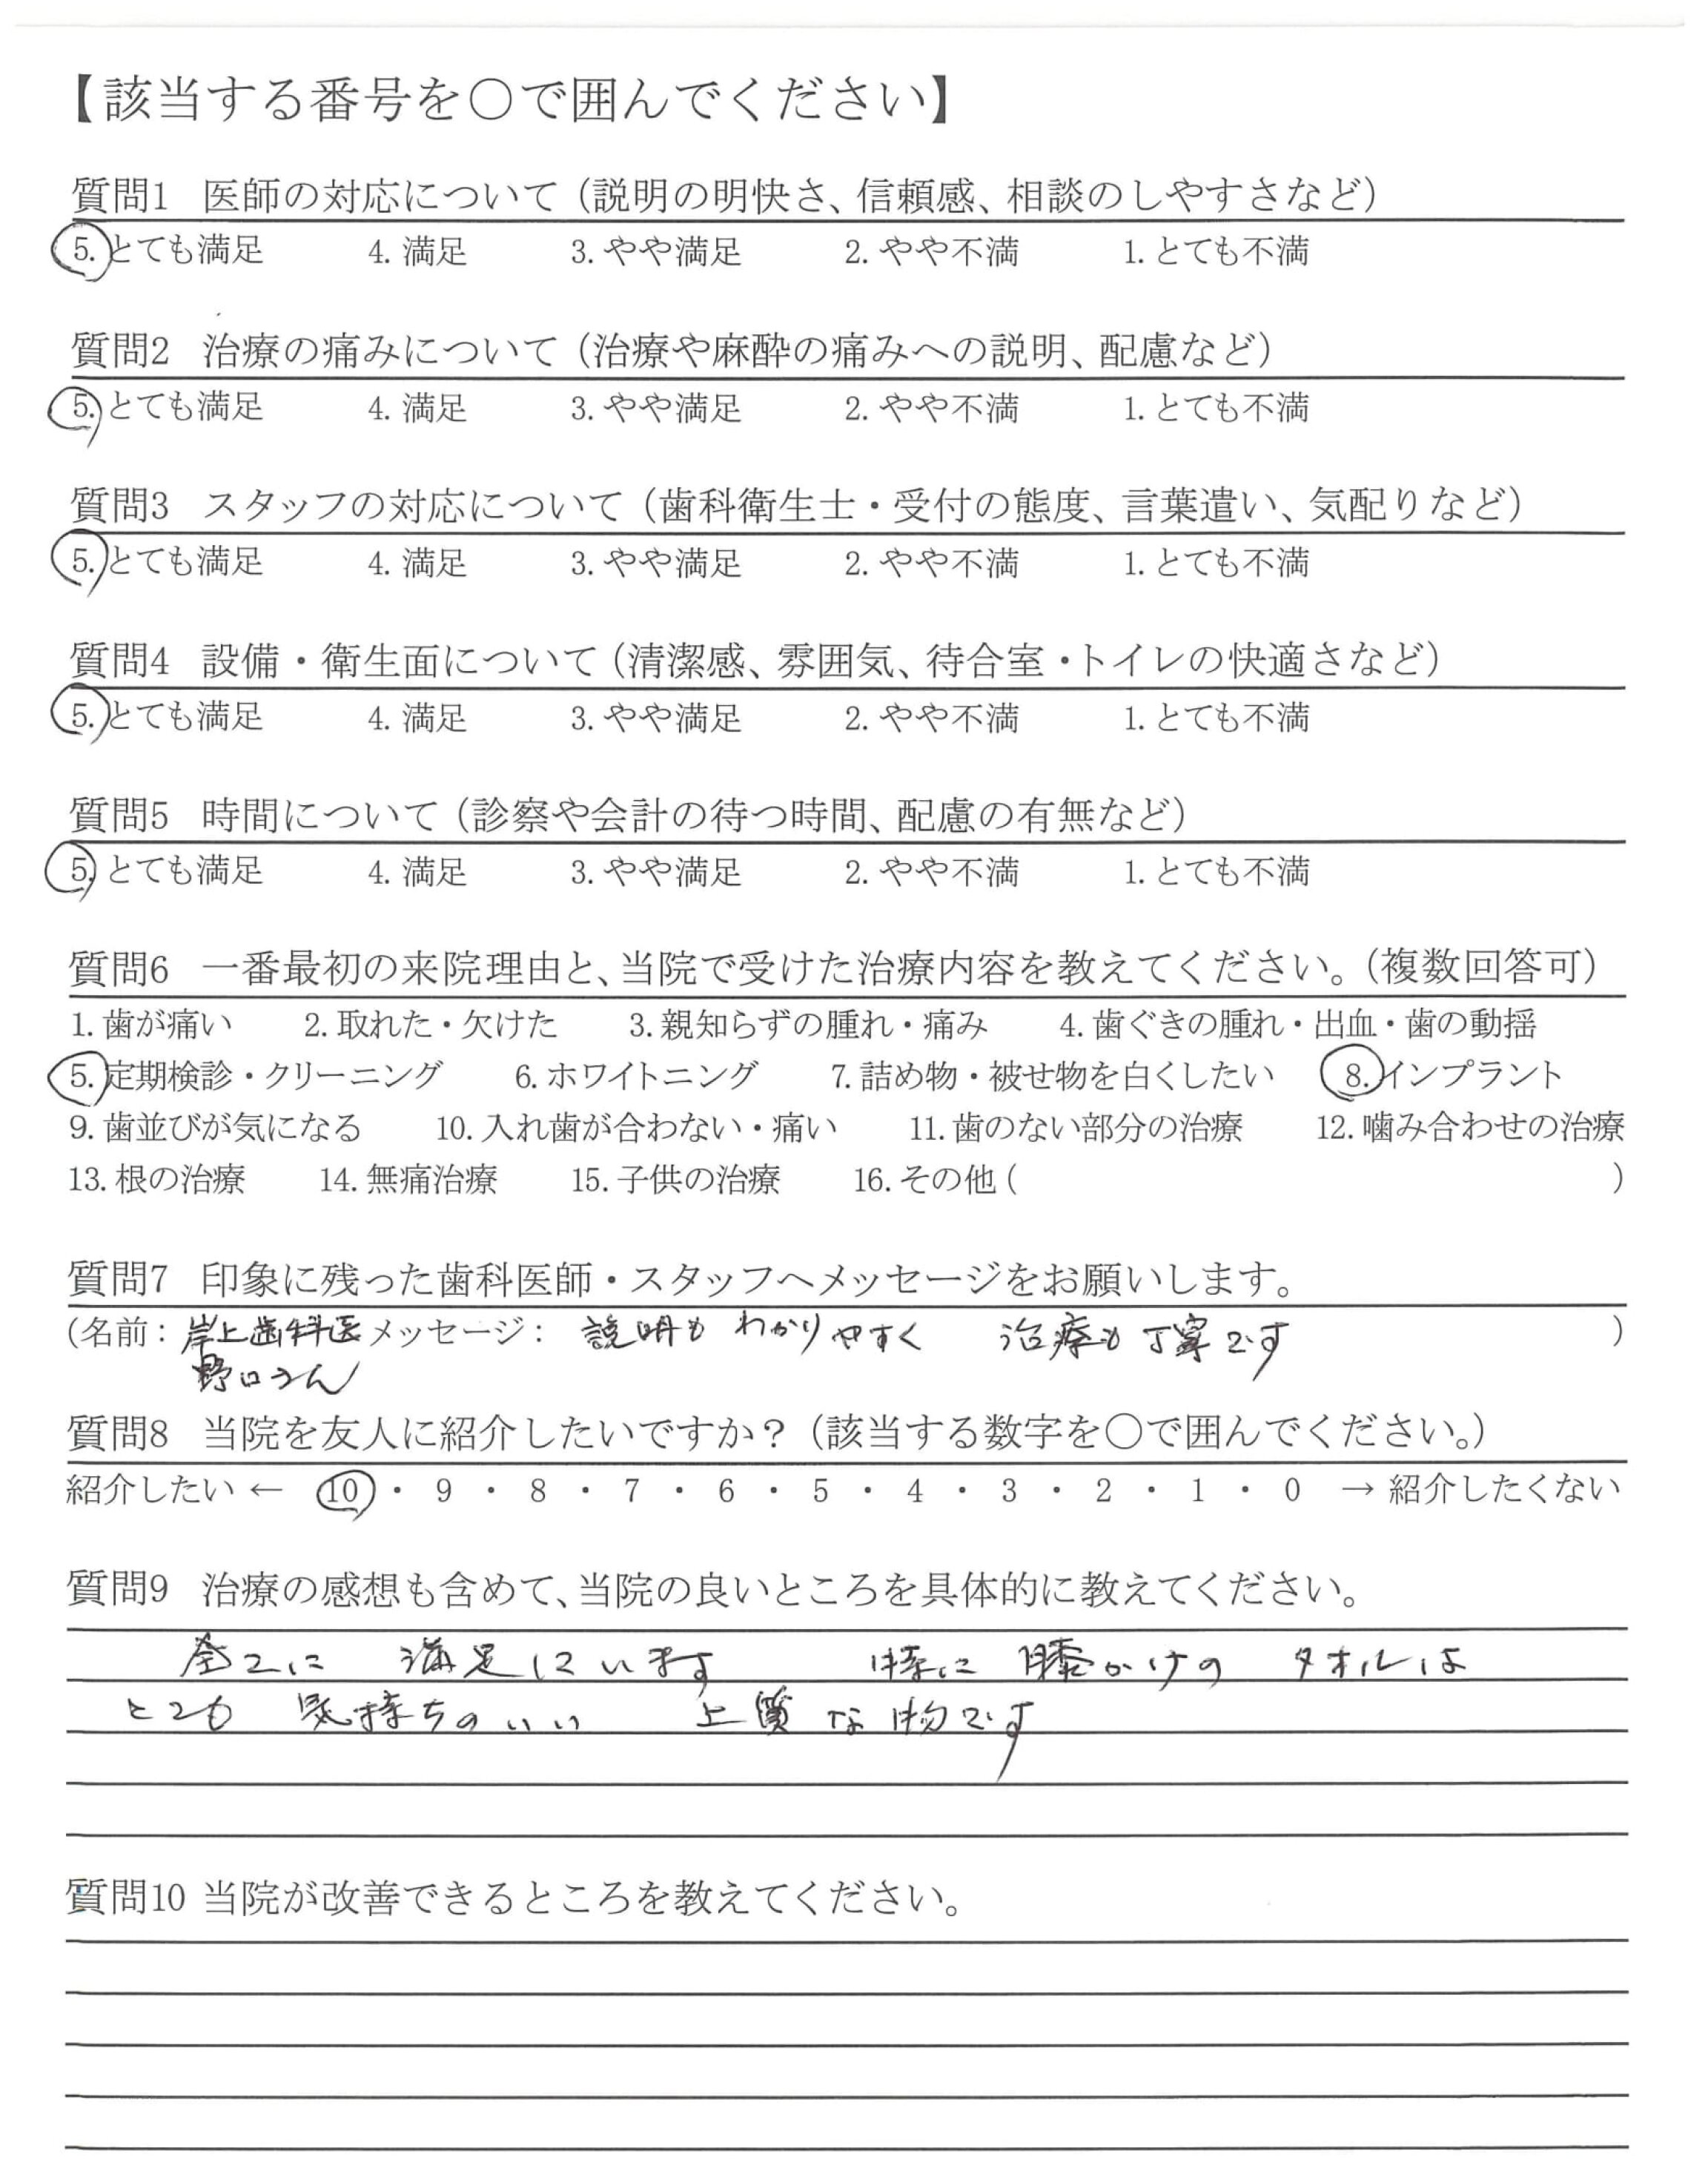 【該当する番号を○で囲んでください】
質問1 医師の対応について（説明の明快さ、信頼感、相談のしやすさなど）
5. とても満足 4. 満足 3. やや満足 2. やや不満 1. とても不満
質問2 治療の痛みについて（治療や麻酔の痛みへの説明、配慮など）
5. とても満足 4. 満足 3. やや満足 2. やや不満 1. とても不満
質問3 スタッフの対応について（歯科衛生士・受付の態度、言葉遣い、気配りなど）
5. とても満足 4. 満足 3. やや満足 2. やや不満 1. とても不満
質問4 設備・衛生面について（清潔感、雰囲気、待合室・トイレの快適さなど）
5. とても満足 4. 満足 3. やや満足 2. やや不満 1. とても不満
質問5 時間について（診察や会計の待つ時間、配慮の有無など）
5. とても満足 4. 満足 3. やや満足 2. やや不満 1. とても不満
質問6 一番最初の来院理由と、当院で受けた治療内容を教えてください。（複数回答可）
1. 歯が痛い 2. 取れた・欠けた 3. 親知らずの腫れ・痛み 4. 歯ぐきの腫れ・出血・歯の動揺
5. 定期検診・クリーニング 6. ホワイトニング 7. 詰め物・被せ物を白くしたい 8. インプラント
9. 歯並びが気になる 10. 入れ歯が合わない・痛い 11. 歯のない部分の治療 12. 噛み合わせの治療
13. 根の治療 14. 無痛治療 15. 子供の治療 16. その他（ ）
質問7 印象に残った歯科医師・スタッフへメッセージをお願いします。
（名前：岸上歯科医 メッセージ： 説明も わかりやすく 治療も 丁寧です ）
野口さん
質問8 当院を友人に紹介したいですか？（該当する数字を○で囲んでください。）
紹介したい ← 10 ・ 9 ・ 8 ・ 7 ・ 6 ・ 5 ・ 4 ・ 3 ・ 2 ・ 1 ・ 0 → 紹介したくない
質問9 治療の感想も含めて、当院の良いところを具体的に教えてください。
全てに 満足しています 特に 膝かけの タオルは
とても 気持ちのいい 上質な物です
質問10 当院が改善できるところを教えてください。